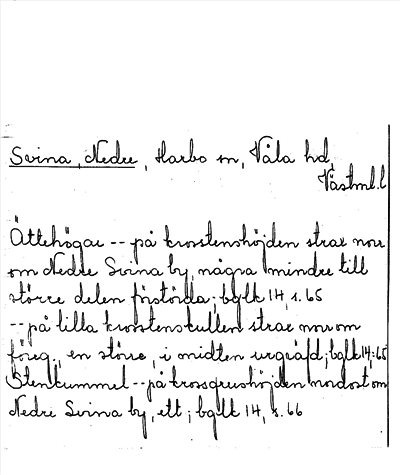 Svina, Nedre, Harbo sn, Våla hd,
Västml. l
Ättehögar -- på krosstenshöjden strax norr
om Nedre Svina by, några mindre till
större delen förstörda; bglk 14, s. 65
-- på lilla krosstenskullen strax norr om
föreg., en större, i midten urgräfd; bglk 14,:65
Stenkummel -- på krossgrushöjden nordost om
Nedre Svina by, ett; bglk 14, s. 66